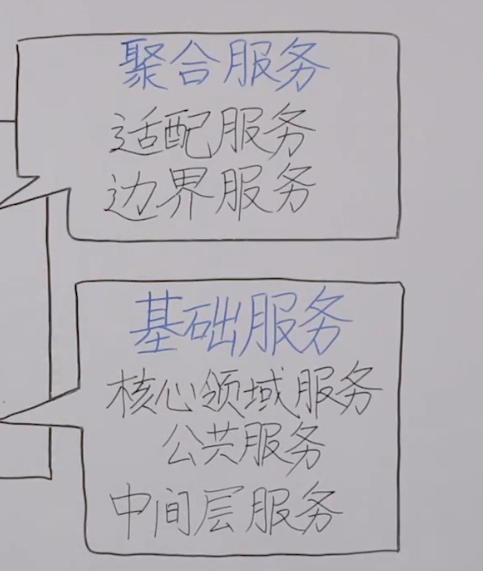 聚合服务
适配服务
边界服务
基础服务
核心领域服务
公共服务
中间层服务